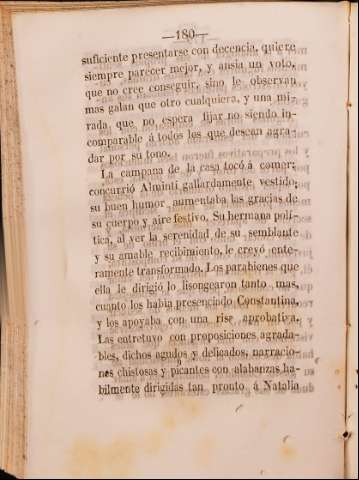 —180—
suficiente presentarse con decencia, quiere
siempre parecer mejor, y ansia un voto,
que no cree conseguir, sino le observan
mas galan que otro cualquiera, y una mi-
rada que no espera fijar no siendo in-
comparable á todos los que desean agra-
dar por su tono.
La campana de la casa tocó á comer;
concurrió Alminti gallardamente vestido,
su buen humor aumentaba las gracias de
su cuerpo y aire festivo. Su hermana polí-
tica, al ver la serenidad de su semblante
y su amable recibimiento, le creyó ente-
ramente transformado. Los parabienes que
ella le dirigió lo lisongearon tanto mas,
cuanto los habia presenciado Constantina,
y los apoyaba con una risa aprobativa.
Las entretuvo con proposiciones agrada-
bles, dichos agudos y delicados, narracio-
nes chistosas y picantes con alabanzas ha-
bilmente dirigidas tan pronto á Natalia